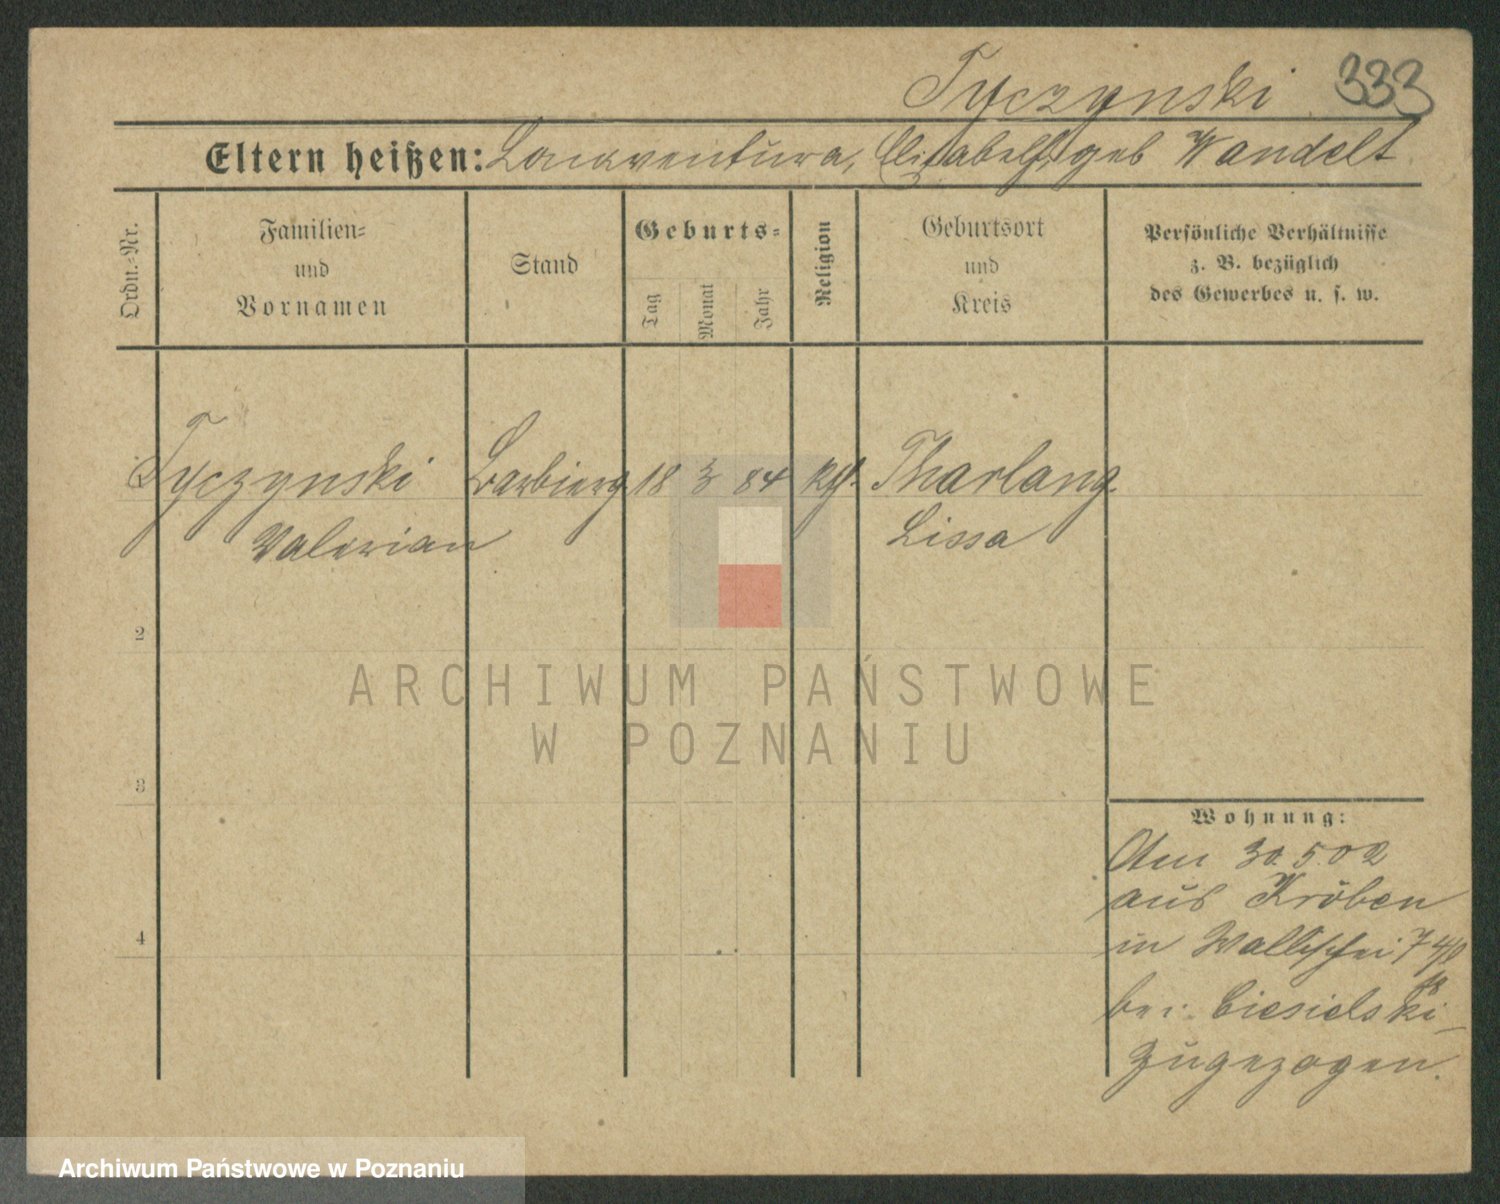 Tyczynski 333
Eltern heißen: Bonaventura, Elisabeth geb Wandelt
Ordn.-Nr.
Familien-
und
Vornamen
Stand
Geburts-
Tag
Monat
Jahr
Religion
Geburtsort
und
Kreis
Persönliche Verhältnisse
z. B. bezüglich
des Gewerbes u. s. w.
Tyczynski Barbierg 18 3 84 kth. Tharlang
Valerian Lissa
2
3
4
ARCHIWUM PAŃSTWOWE
W POZNANIU
Wohnung:
Am 30.5.02
aus Kröben
in Wallischei 74
bei Ciesielski
zugezogen.
Archiwum Państwowe w Poznaniu